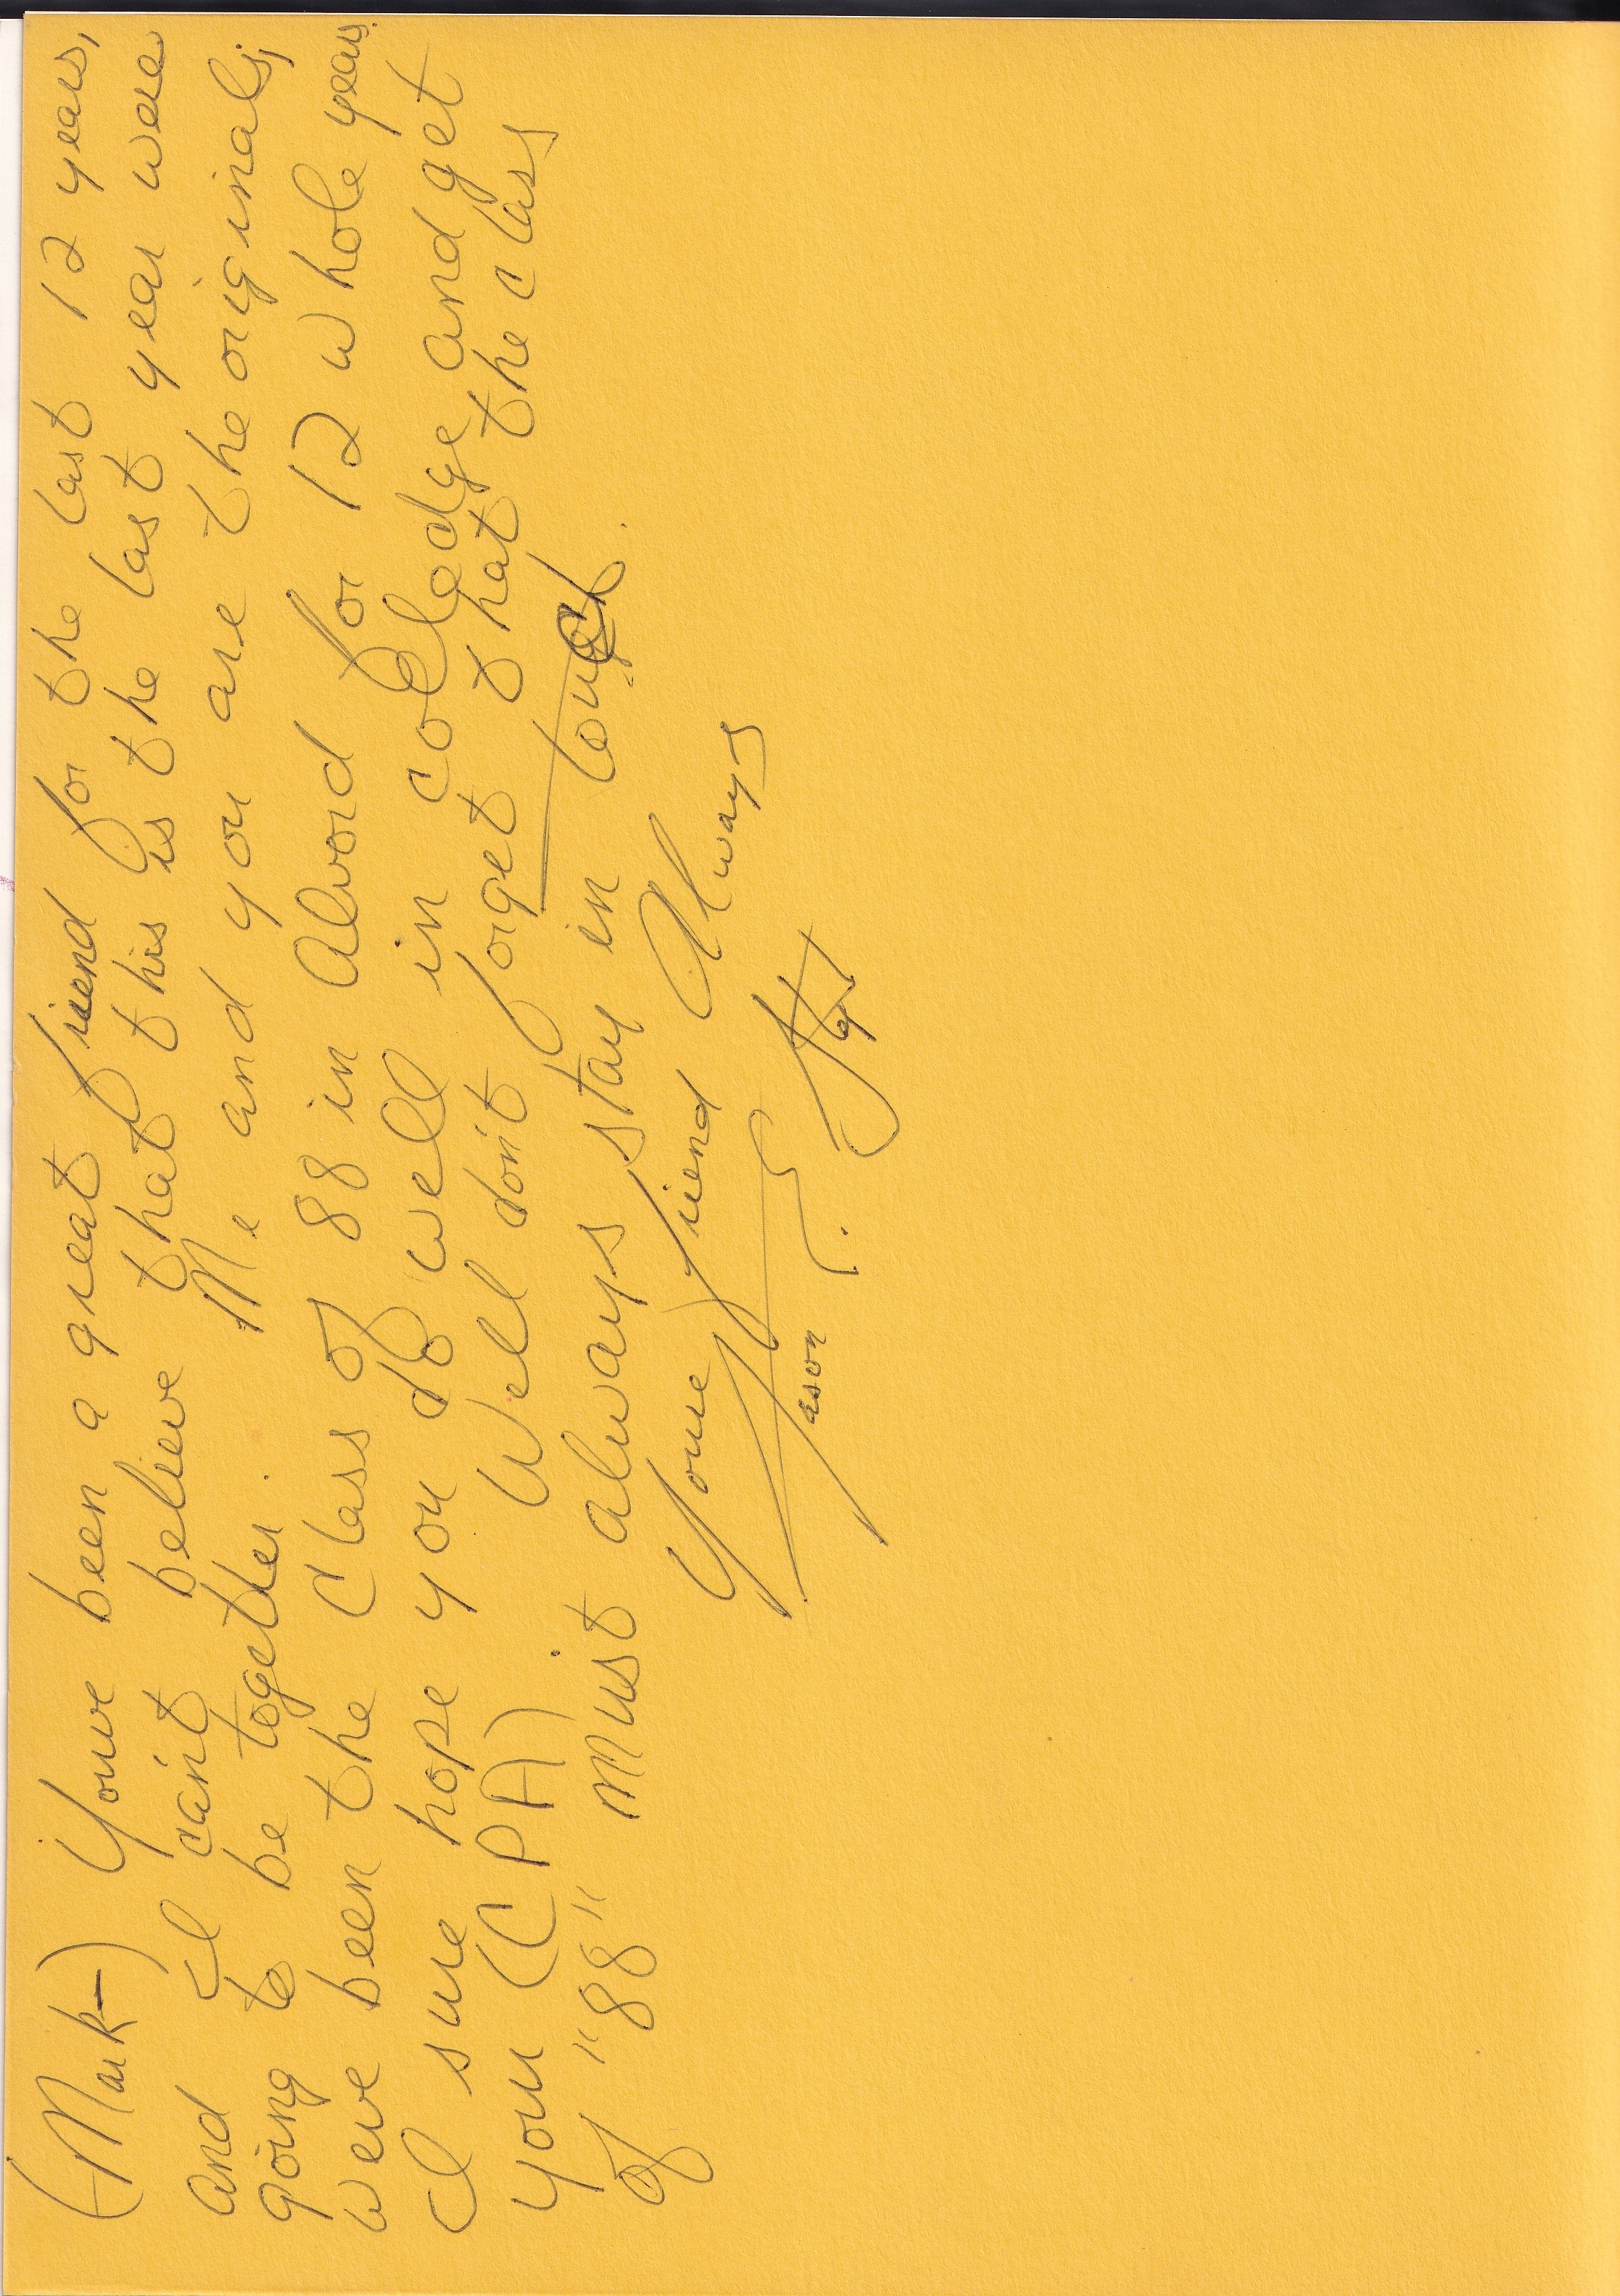 (Mark) Youve been a great friend for the last 12 years,
and I can't believe that this is the last year were
going to be together. Me and you are the originals,
weve been the Class of 88 in Alvord for 12 whole years.
I sure hope you do well in colledge and get
your (CPA). Well don't forget that that the class
of "88" must always stay in touch.
Youre friend Always
Jason E.